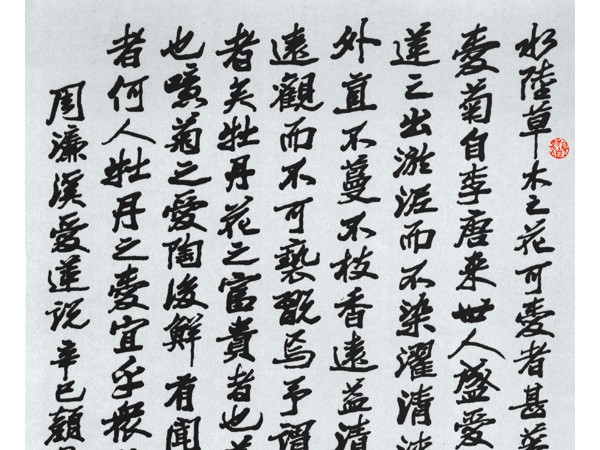 水陸草木之花可愛者甚
愛菊自李唐来世人盛愛
蓮之出淤泥而不染濯清
外直不蔓不枝香遠益清
遠觀而不可褻翫焉予謂
者矣牡丹花之富貴者也
也噫菊之愛陶後鮮有聞
者何人牡丹之愛宜乎衆
周濂溪愛蓮説 辛巳顔